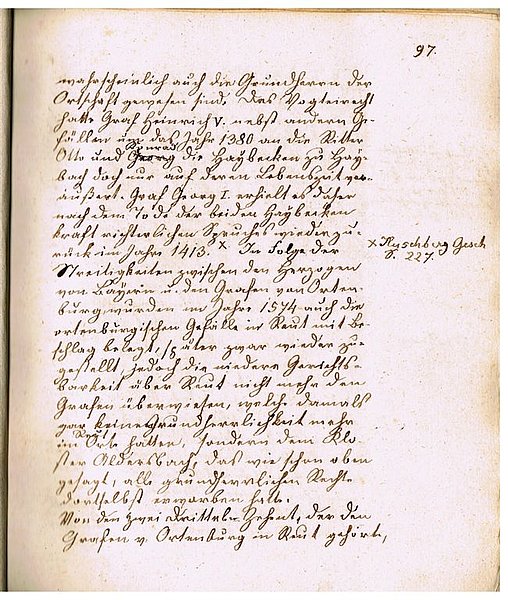 97.
wahrscheinlich auch die Grundherrn der
Ortschaft gewesen sind. Das Vogteirecht
hatte Graf Heinrich V. nebst andern Ge-
fällen um das Jahr 1380 an die Ritter
Konrad
Otto und Georg die Haybecken zu Hay-
bach doch nur auf deren Lebenszeit ver-
äußert. Graf Georg I. erhielt es daher
nach dem Tode der beiden Haybecken
kraft richterlichen Spruches wieder zu-
rück im Jahre 1413. × In Folge der
× Huschberg Gesch
S. 227.
Streitigkeiten zwischen den Herzogen
von Bayern u. den Grafen von Orten-
burg wurden im Jahre 1574 auch die
ortenburgischen Gefälle in Reut mit Be-
schlag belegt, später zwar wieder zu-
gestellt, jedoch die niedere Gerichts-
barkeit über Reut nicht mehr den
Grafen überwiesen, welche damals
gar keine Grundherrlichkeit mehr
Reut
im Orte hatten, sondern dem Klo-
ster Aldersbach, das wie schon oben
gesagt, alle grundherrlichen Rechte
dortselbst erworben hatte.
Von den zwei Drittel Zehent, der den
Grafen v. Ortenburg in Reut gehörte,